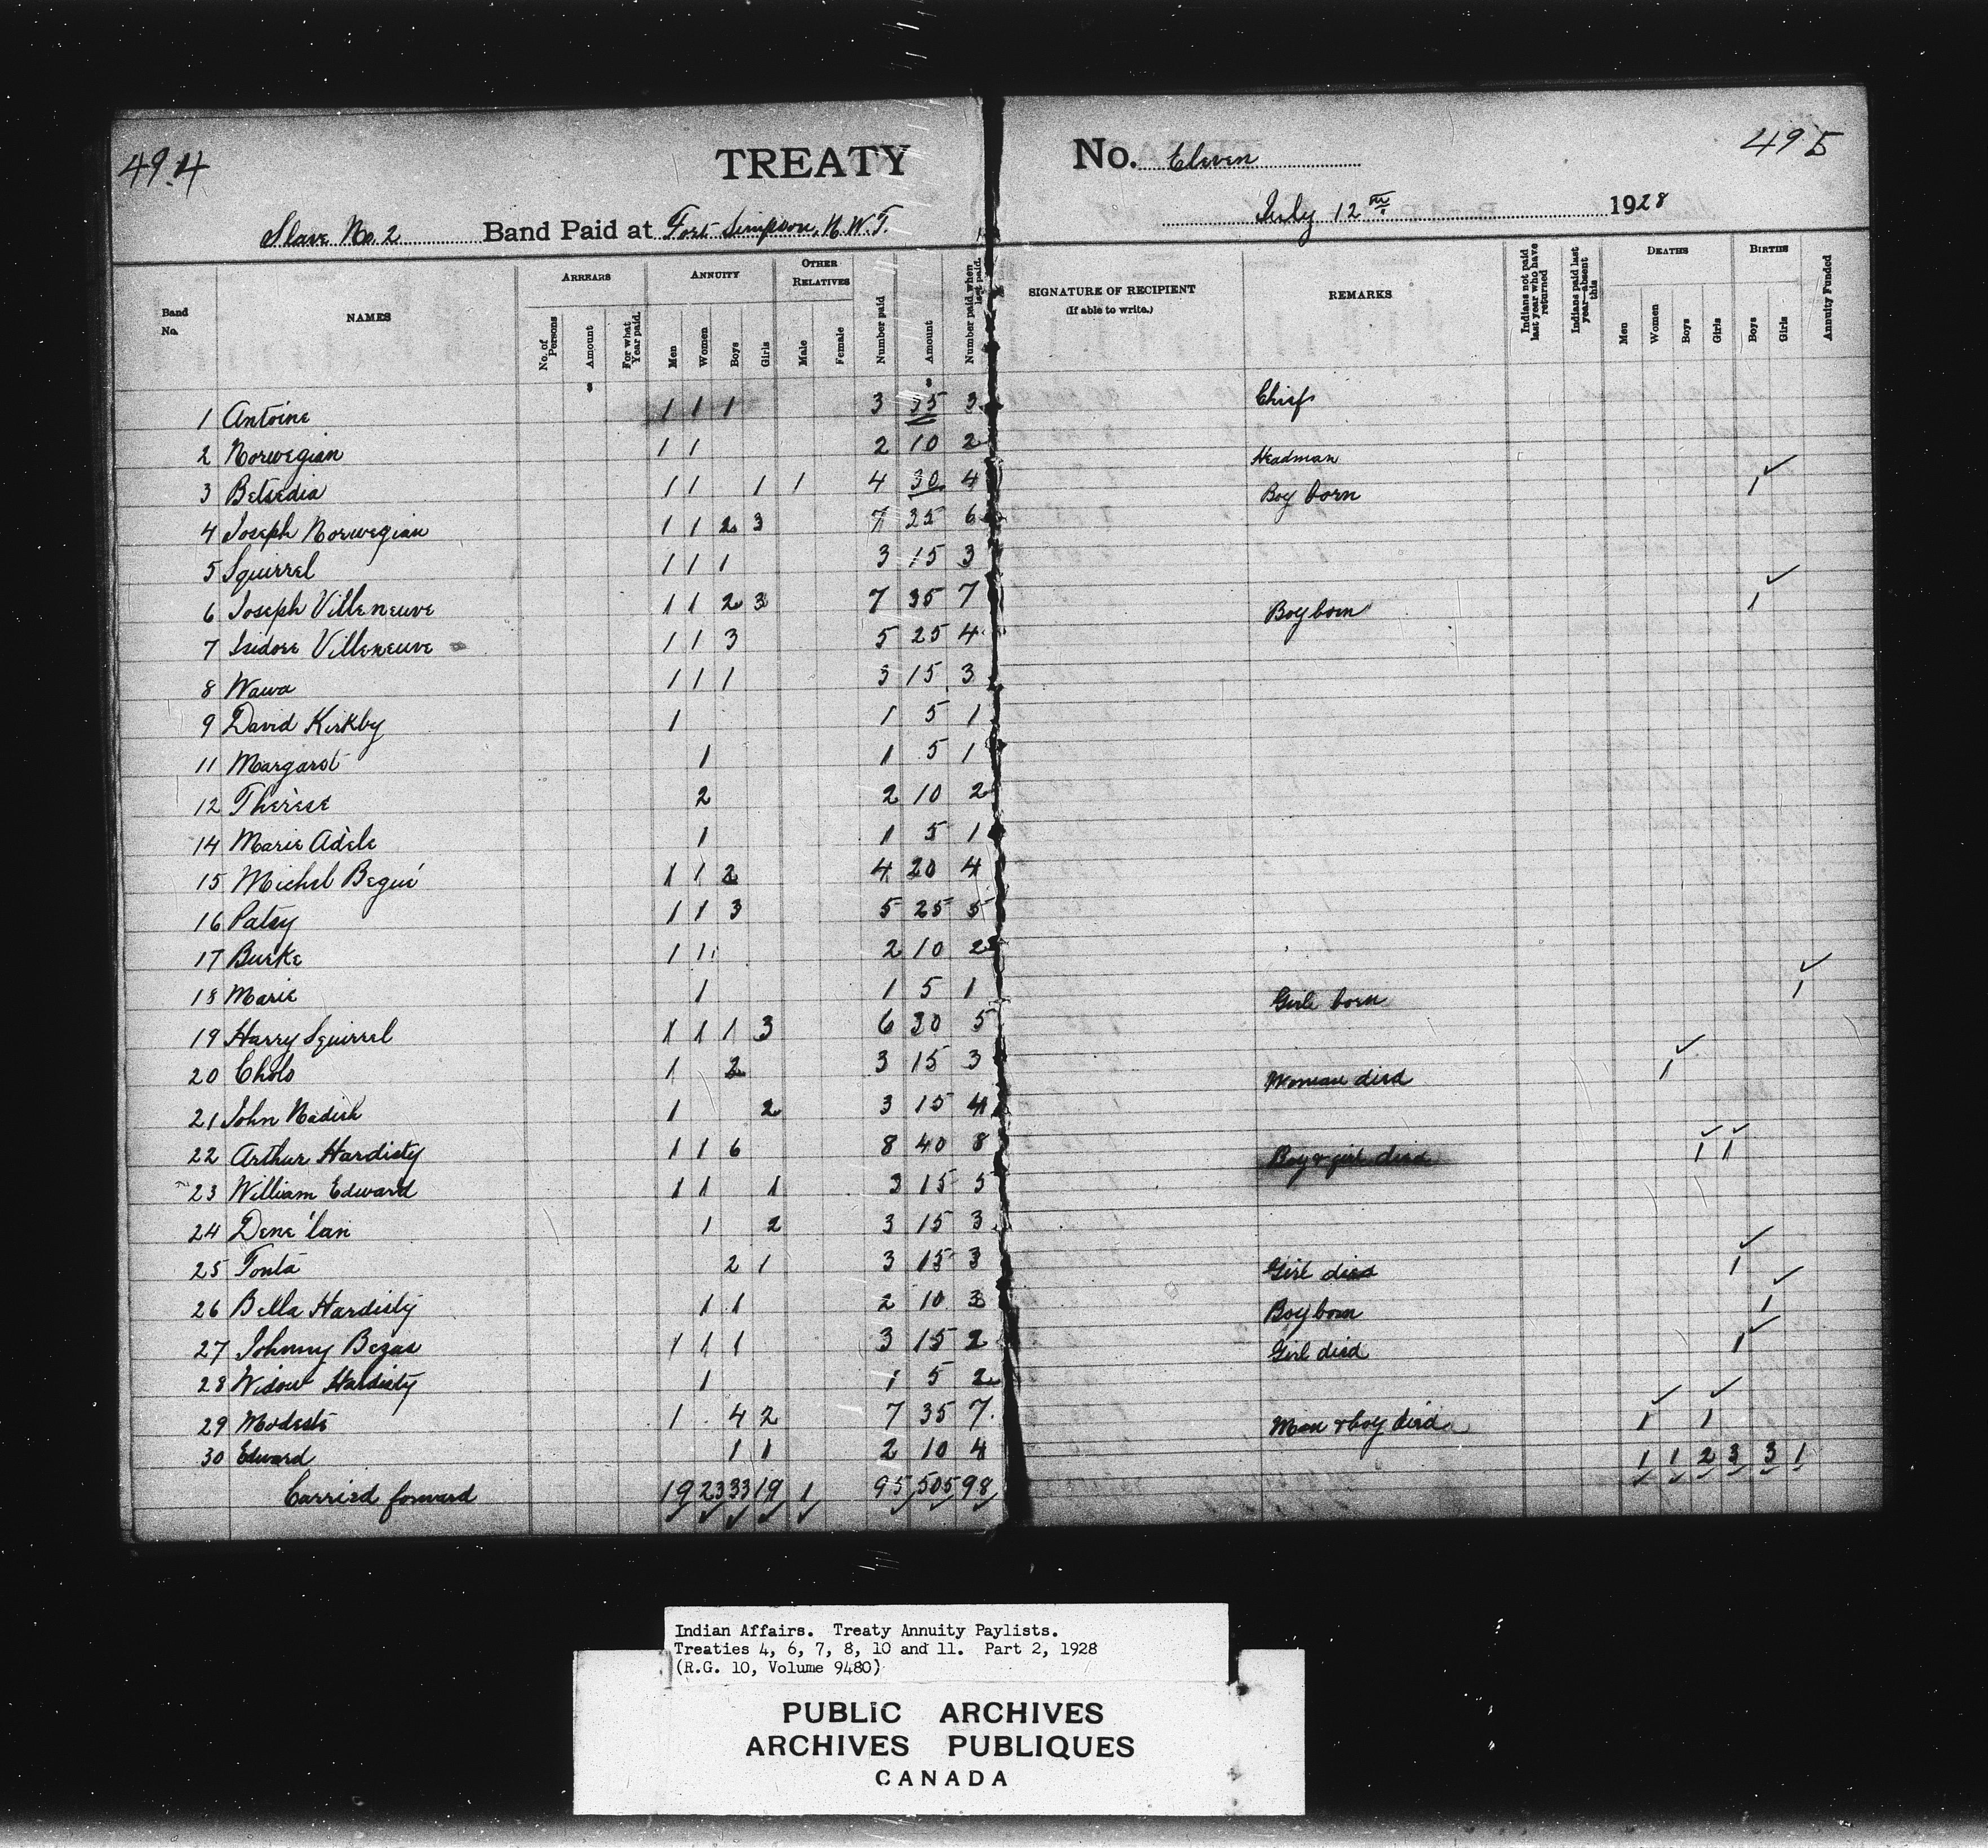 49.4
TREATY
No. Eleven
49 5
Slave No. 2 Band Paid at Fort Simpson, N.W.T.
July 12th 1928
Band No.
NAMES
ARREARS
No. of Persons
Amount
For what Year paid.
ANNUITY
Men
Women
Boys
Girls
OTHER RELATIVES
Male
Female
Number paid
Amount
Number paid when last paid.
SIGNATURE OF RECIPIENT
(If able to write.)
REMARKS
Indians not paid last year who have returned
Indians paid last year—absent this
DEATHS
Men
Women
Boys
Girls
BIRTHS
Boys
Girls
Annuity Funded
1 Antoine 1 1 1 3 35 3 Chief
2 Norwegian 1 1 2 10 2 Headman
3 Betsedia 1 1 1 1 4 30 4 Boy born 1
4 Joseph Norwegian 1 1 2 3 7 35 6
5 Squirrel 1 1 1 3 15 3
6 Joseph Villeneuve 1 1 2 3 7 35 7 Boy born 1
7 Isidore Villeneuve 1 1 3 5 25 4
8 Wawa 1 1 1 3 15 3
9 David Kirkby 1 1 5 1
11 Margaret 1 1 5 1
12 Therèse 2 2 10 2
14 Marie Adèle 1 1 5 1
15 Michel Begué 1 1 2 4 20 4
16 Patsy 1 1 3 5 25 5
17 Burke 1 1 2 10 2
18 Marie 1 1 5 1 Girl born 1
19 Harry Squirrel 1 1 1 3 6 30 5
20 Cholo 1 2 3 15 3 Woman died 1
21 John Nadish 1 2 3 15 4
22 Arthur Hardisty 1 1 6 8 40 8 Boy & girl died 1 1
23 William Edward 1 1 1 3 15 5
24 Dene 'lan 1 2 3 15 3
25 Tonta 2 1 3 15 3 Girl died 1
26 Bella Hardisty 1 1 2 10 3 Boy born 1
27 Johnny Bezas 1 1 1 3 15 2 Girl died 1
28 Widow Hardisty 1 1 5 2
29 Modeste 1 4 2 7 35 7 Man & boy died 1 1
30 Edward 1 1 2 10 4 1 1 2 3 3 1
Carried forward 19 23 33 19 1 95 505 98
Indian Affairs. Treaty Annuity Paylists.
Treaties 4, 6, 7, 8, 10 and 11. Part 2, 1928
(R.G. 10, Volume 9480)
PUBLIC ARCHIVES
ARCHIVES PUBLIQUES
CANADA